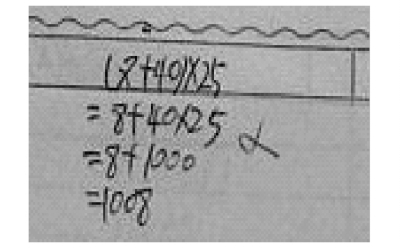 (8+40)×25
=8+40×25
=8+1000
=1008